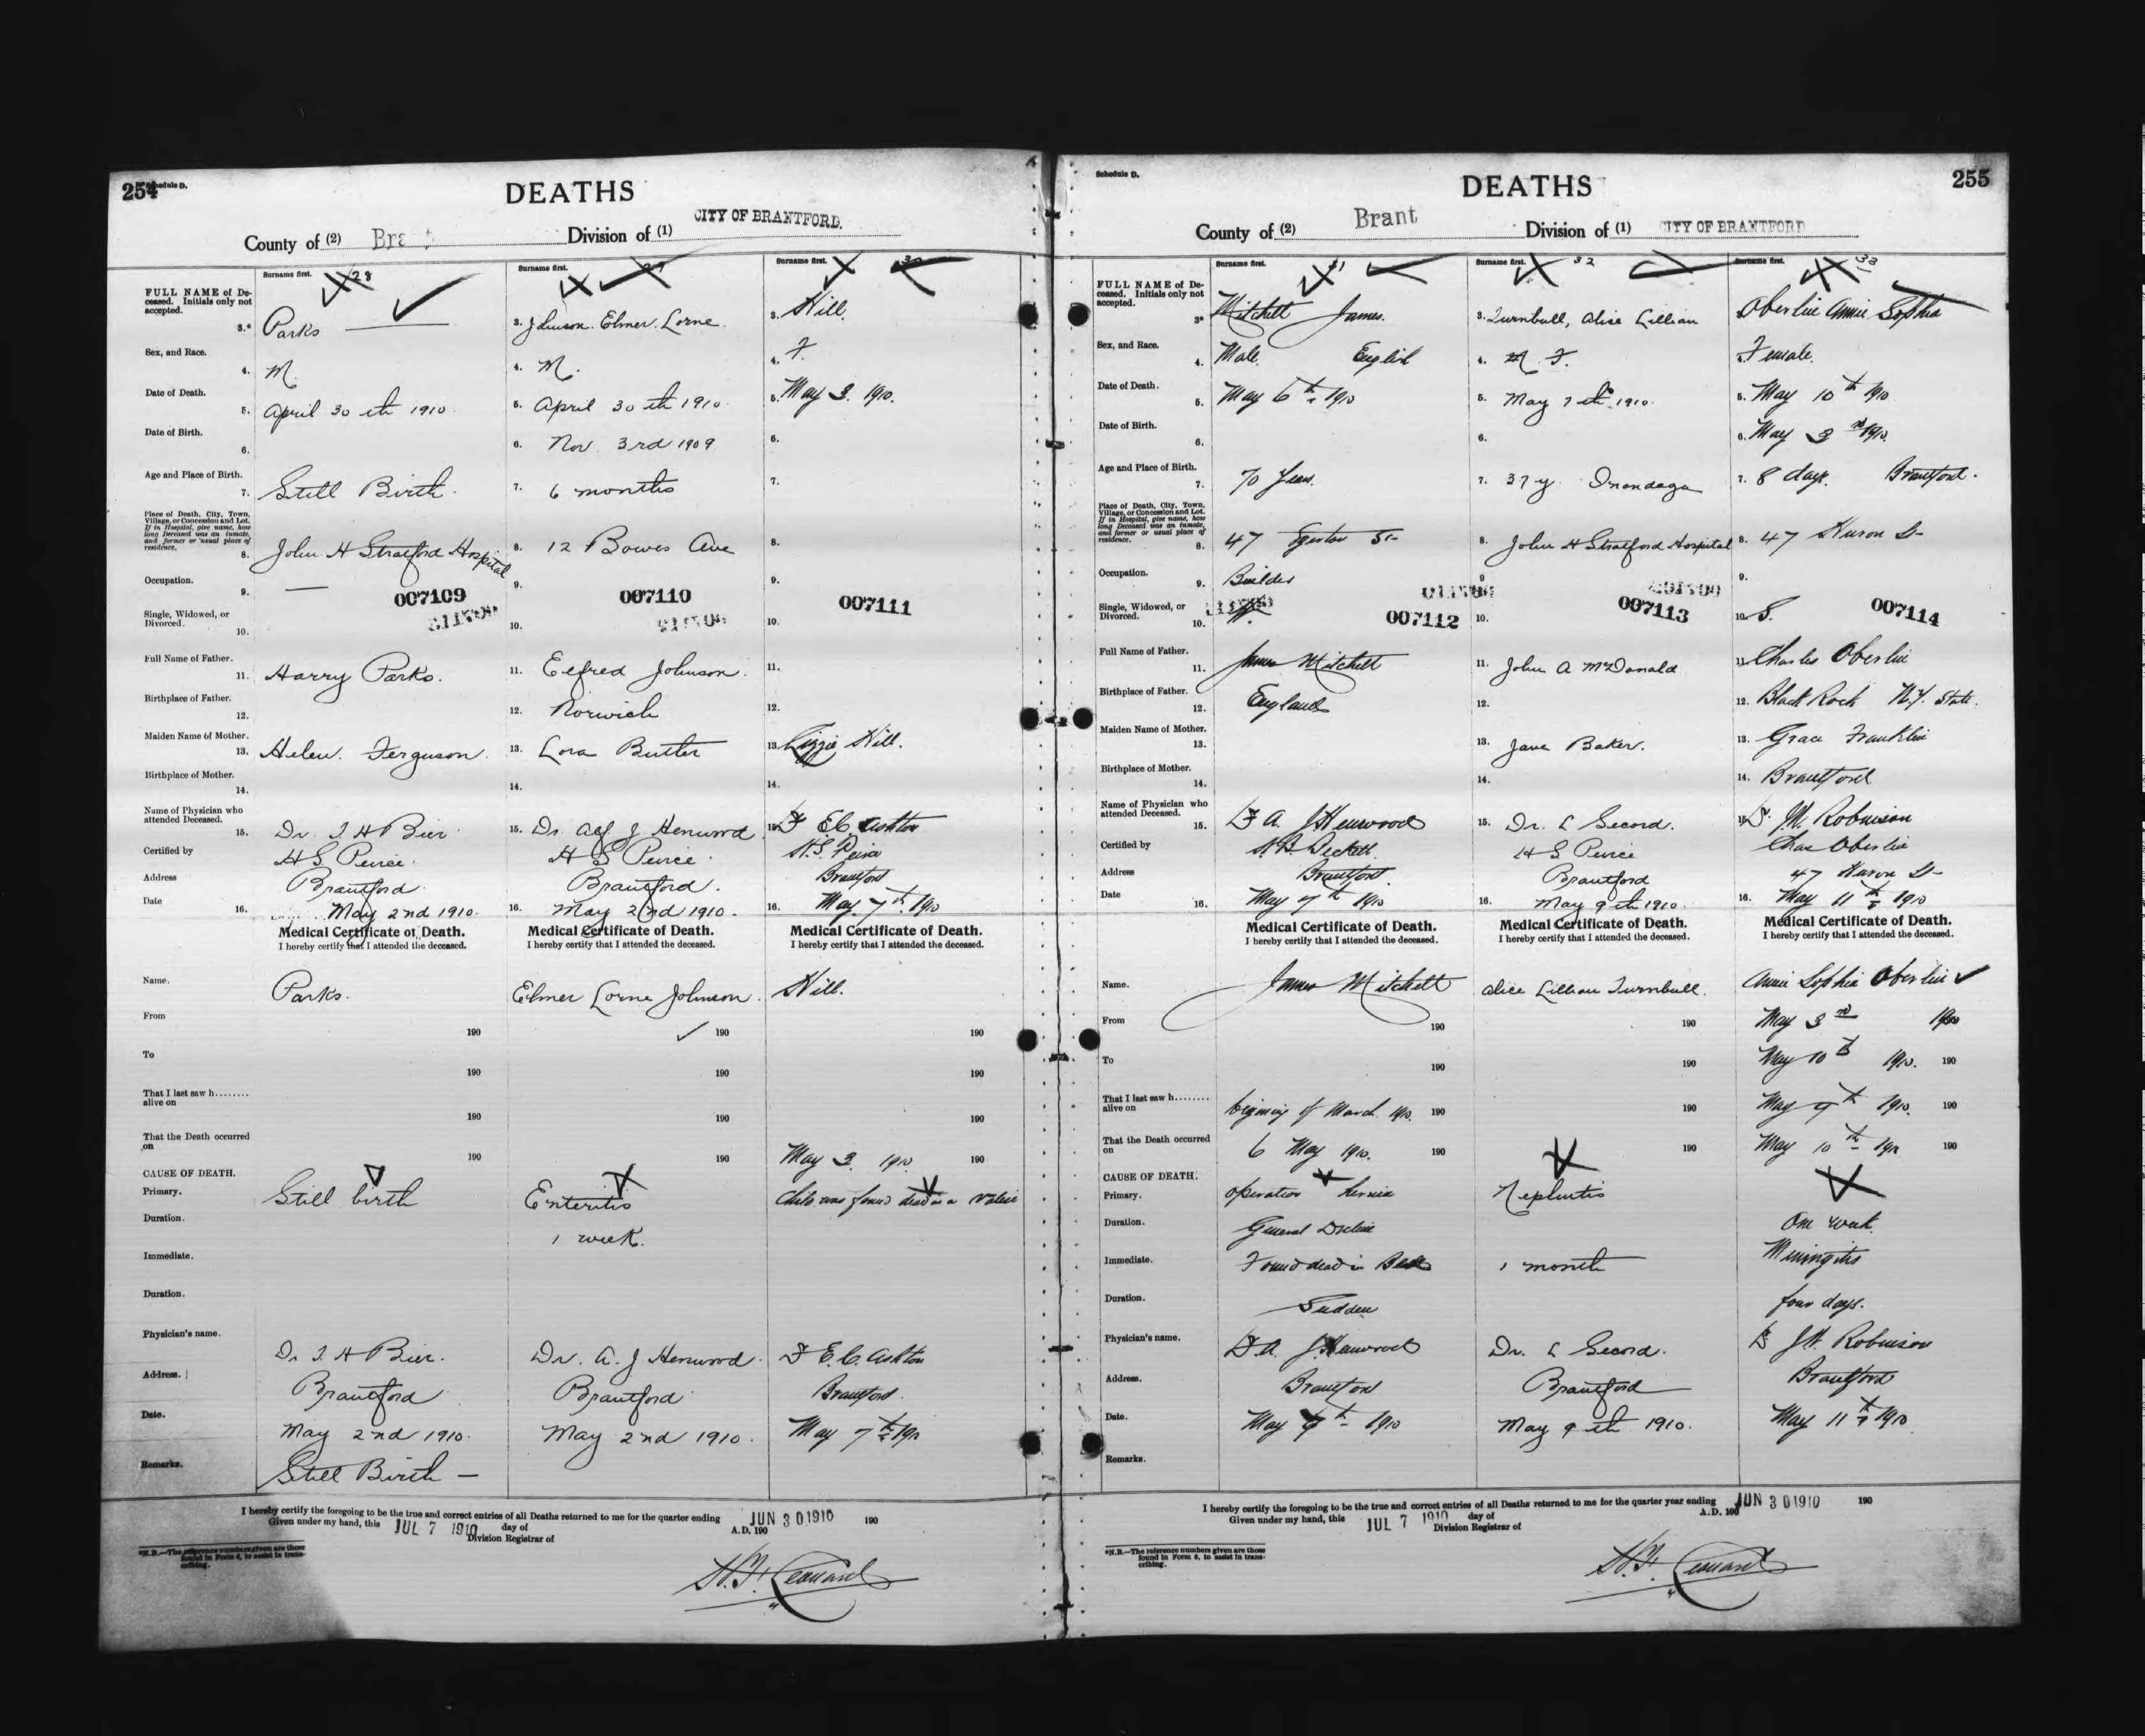 254
Schedule D.
DEATHS
County of (2) Brant Division of (1) CITY OF BRANTFORD.
Surname first. 28 Surname first. 29 Surname first. 30
FULL NAME of Deceased. Initials only not accepted. 3.* Parks 3. Johnson. Elmer. Lorne 3. Hill.
Sex, and Race. 4. M. 4. M. 4. F.
Date of Death. 5. April 30th 1910. 5. April 30th 1910. 5. May 3. 1910.
Date of Birth. 6. 6. Nov 3rd 1909 6.
Age and Place of Birth. 7. Still Birth. 7. 6 months 7.
Place of Death, City, Town, Village, or Concession and Lot. If in Hospital, give name, how long Deceased was an inmate, and former or usual place of residence. 8. John H Stratford Hospital 8. 12 Bowes Ave 8.
Occupation. 9. — 9. 9.
007109 007110 007111
Single, Widowed, or Divorced. 10. 10. 10.
Full Name of Father. 11. Harry Parks. 11. Elfred Johnson. 11.
Birthplace of Father. 12. 12. Norwich 12.
Maiden Name of Mother. 13. Helen. Ferguson. 13. Lora Butler 13. Lizzie Hill.
Birthplace of Mother. 14. 14. 14.
Name of Physician who attended Deceased. 15. Dr. T H Bier 15. Dr Alf J Henwood 15. Dr E.C. Ashton
Certified by H S Peirce. H S Peirce. H.S. Peirce
Address Brantford. Brantford. Brantford
Date 16. May 2nd 1910. 16. May 2nd 1910. 16. May 7th 1910
Medical Certificate of Death. Medical Certificate of Death. Medical Certificate of Death.
I hereby certify that I attended the deceased. I hereby certify that I attended the deceased. I hereby certify that I attended the deceased.
Name. Parks. Elmer Lorne Johnson. Hill.
From 190 190 190
To 190 190 190
That I last saw h........ alive on 190 190 190
That the Death occurred on 190 190 May 3 1910 190
CAUSE OF DEATH.
Primary. Still birth Enteritis Child was found dead in a valise
Duration. 1 week.
Immediate.
Duration.
Physician's name. Dr T H Bier. Dr. A. J Henwood. Dr E.C. Ashton
Address. Brantford Brantford Brantford.
Date. May 2nd 1910. May 2nd 1910. May 7th 1910
Remarks. Still Birth —
I hereby certify the foregoing to be the true and correct entries of all Deaths returned to me for the quarter ending JUN 30 1910 190
Given under my hand, this JUL 7 1910 day of A.D. 190
Division Registrar of
*N.B.—The reference numbers given are those found in Form 6, to assist in transcribing.
Schedule D.
DEATHS
255
County of (2) Brant Division of (1) CITY OF BRANTFORD
Surname first. 31 Surname first. 32 Surname first. 33
FULL NAME of Deceased. Initials only not accepted. 3* Mitchell James. 3. Turnbull, Alice Lillian Oberlin Annie Sophia
Sex, and Race. 4. Male English 4. M F. 4. Female.
Date of Death. 5. May 6th 1910 5. May 7th 1910. 5. May 10th 1910
Date of Birth. 6. 6. 6. May 3rd 1910.
Age and Place of Birth. 7. 70 Years. 7. 37 y Onondaga 7. 8 days. Brantford.
Place of Death, City, Town, Village, or Concession and Lot. If in Hospital, give name, how long Deceased was an inmate, and former or usual place of residence. 8. 47 Egerton St 8. John H Stratford Hospital 8. 47 Huron St
Occupation. 9. Builder 9 9.
Single, Widowed, or Divorced. 10. 007112 10. 007113 10. S. 007114
Full Name of Father. 11. James Mitchell 11. John A McDonald 11. Charles Oberlin
Birthplace of Father. 12. England 12. 12. Black Rock N.Y. State.
Maiden Name of Mother. 13. 13. Jane Baker. 13. Grace Franklin
Birthplace of Mother. 14. 14. 14. Brantford
Name of Physician who attended Deceased. 15. Dr A. J Henwood 15. Dr. L Secord. 15. Dr. J.W. Robinson
Certified by H.B. Beckett. H S Peirce Chas Oberlin
Address Brantford. Brantford 47 Huron St
Date 16. May 7th 1910 16. May 9th 1910. 16. May 11th 1910
Medical Certificate of Death. Medical Certificate of Death. Medical Certificate of Death.
I hereby certify that I attended the deceased. I hereby certify that I attended the deceased. I hereby certify that I attended the deceased.
Name. James Mitchell Alice Lillian Turnbull. Annie Sophia Oberlin
From 190 190 May 3rd 1910
To 190 190 May 10th 1910. 190
That I last saw h........ alive on begining of March 1910. 190 190 May 9th 1910. 190
That the Death occurred on 6 May 1910. 190 190 May 10th 1910 190
CAUSE OF DEATH.
Primary. operation hernia Nephritis
Duration. General Decline One week
Immediate. Found dead in Bed 1 month Meningitis
Duration. Sudden four days.
Physician's name. Dr A. J Henwood Dr. L Secord. Dr J.W. Robinson
Address. Brantford Brantford Brantford
Date. May 7th 1910 May 9th 1910. May 11th 1910
Remarks.
I hereby certify the foregoing to be the true and correct entries of all Deaths returned to me for the quarter year ending JUN 30 1910 190
Given under my hand, this JUL 7 1910 day of A.D. 190
Division Registrar of
*N.B.—The reference numbers given are those found in Form 6, to assist in transcribing.